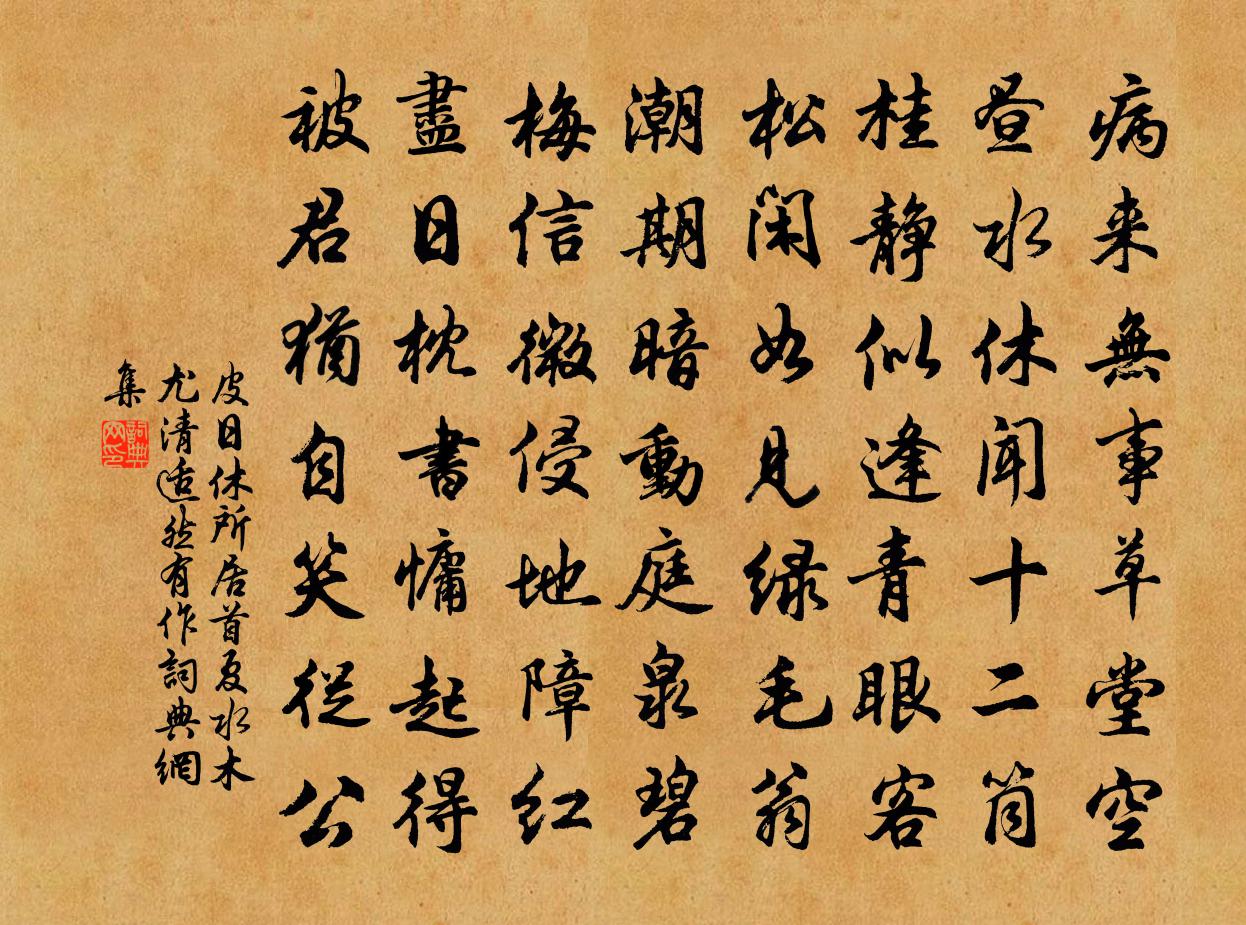 病来無事草堂空
昼水休闻十二筒
桂静似逢青眼客
松闲如见绿毛翁
潮期暗動庭泉碧
梅信微侵地障红
盡日枕書慵起得
被君猶自笑從公
皮日休所居首夏水木
尤清适然有作詞典網
集
詞典网印